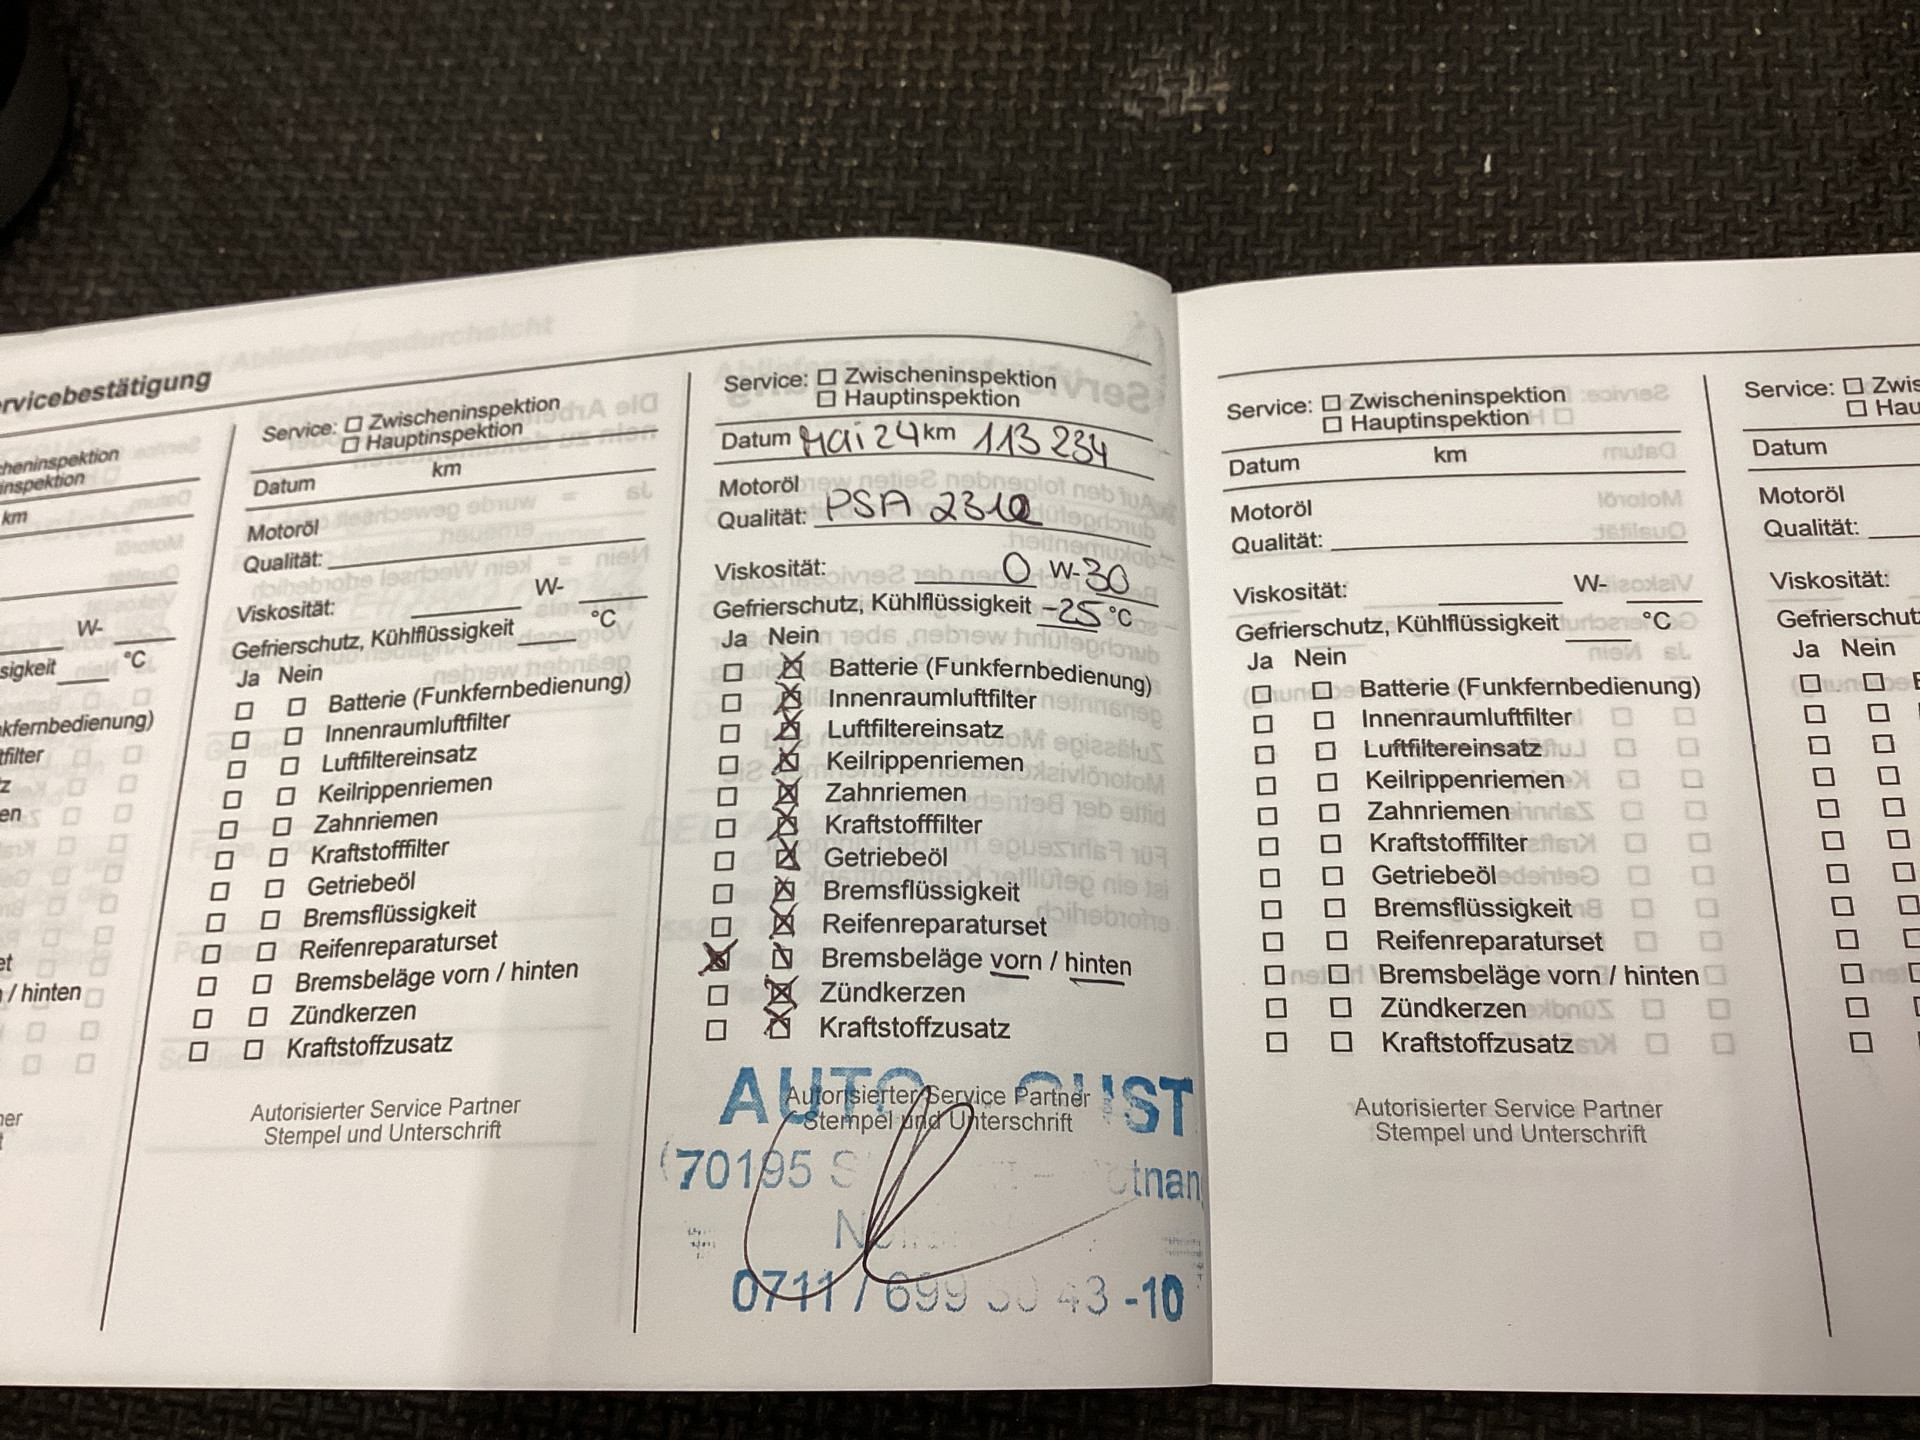 Servicebestätigung
cheninspektion
inspektion
km
W-
sigkeit °C
kfernbedienung)
tfilter
z
en
et
/ hinten
ner
t
Service: Zwischeninspektion
Hauptinspektion
Datum km
Motoröl
Qualität:
Viskosität: W-
Gefrierschutz, Kühlflüssigkeit °C
Ja Nein
Batterie (Funkfernbedienung)
Innenraumluftfilter
Luftfiltereinsatz
Keilrippenriemen
Zahnriemen
Kraftstofffilter
Getriebeöl
Bremsflüssigkeit
Reifenreparaturset
Bremsbeläge vorn / hinten
Zündkerzen
Kraftstoffzusatz
Autorisierter Service Partner
Stempel und Unterschrift
Service: Zwischeninspektion
Hauptinspektion
Datum Mai 24 km 113 234
Motoröl
Qualität: PSA 2312
Viskosität: 0 W-30
Gefrierschutz, Kühlflüssigkeit -25 °C
Ja Nein
Batterie (Funkfernbedienung)
Innenraumluftfilter
Luftfiltereinsatz
Keilrippenriemen
Zahnriemen
Kraftstofffilter
Getriebeöl
Bremsflüssigkeit
Reifenreparaturset
Bremsbeläge vorn / hinten
Zündkerzen
Kraftstoffzusatz
AUTO
Autorisierter Service Partner
Stempel und Unterschrift
70195
0711 / 699 30 43 -10
Service: Zwischeninspektion
Hauptinspektion
Datum km
Motoröl
Qualität:
Viskosität: W-
Gefrierschutz, Kühlflüssigkeit °C
Ja Nein
Batterie (Funkfernbedienung)
Innenraumluftfilter
Luftfiltereinsatz
Keilrippenriemen
Zahnriemen
Kraftstofffilter
Getriebeöl
Bremsflüssigkeit
Reifenreparaturset
Bremsbeläge vorn / hinten
Zündkerzen
Kraftstoffzusatz
Autorisierter Service Partner
Stempel und Unterschrift
Service: Zwis
Hau
Datum
Motoröl
Qualität:
Viskosität:
Gefrierschutz
Ja Nein